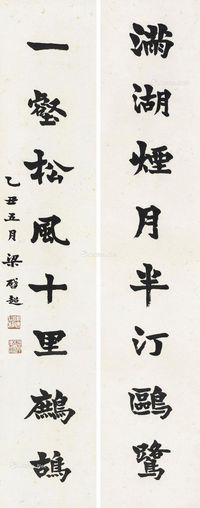 滿湖煙月半汀鷗鷺
一壑松風十里鷓鴣
乙丑五月 梁啟超